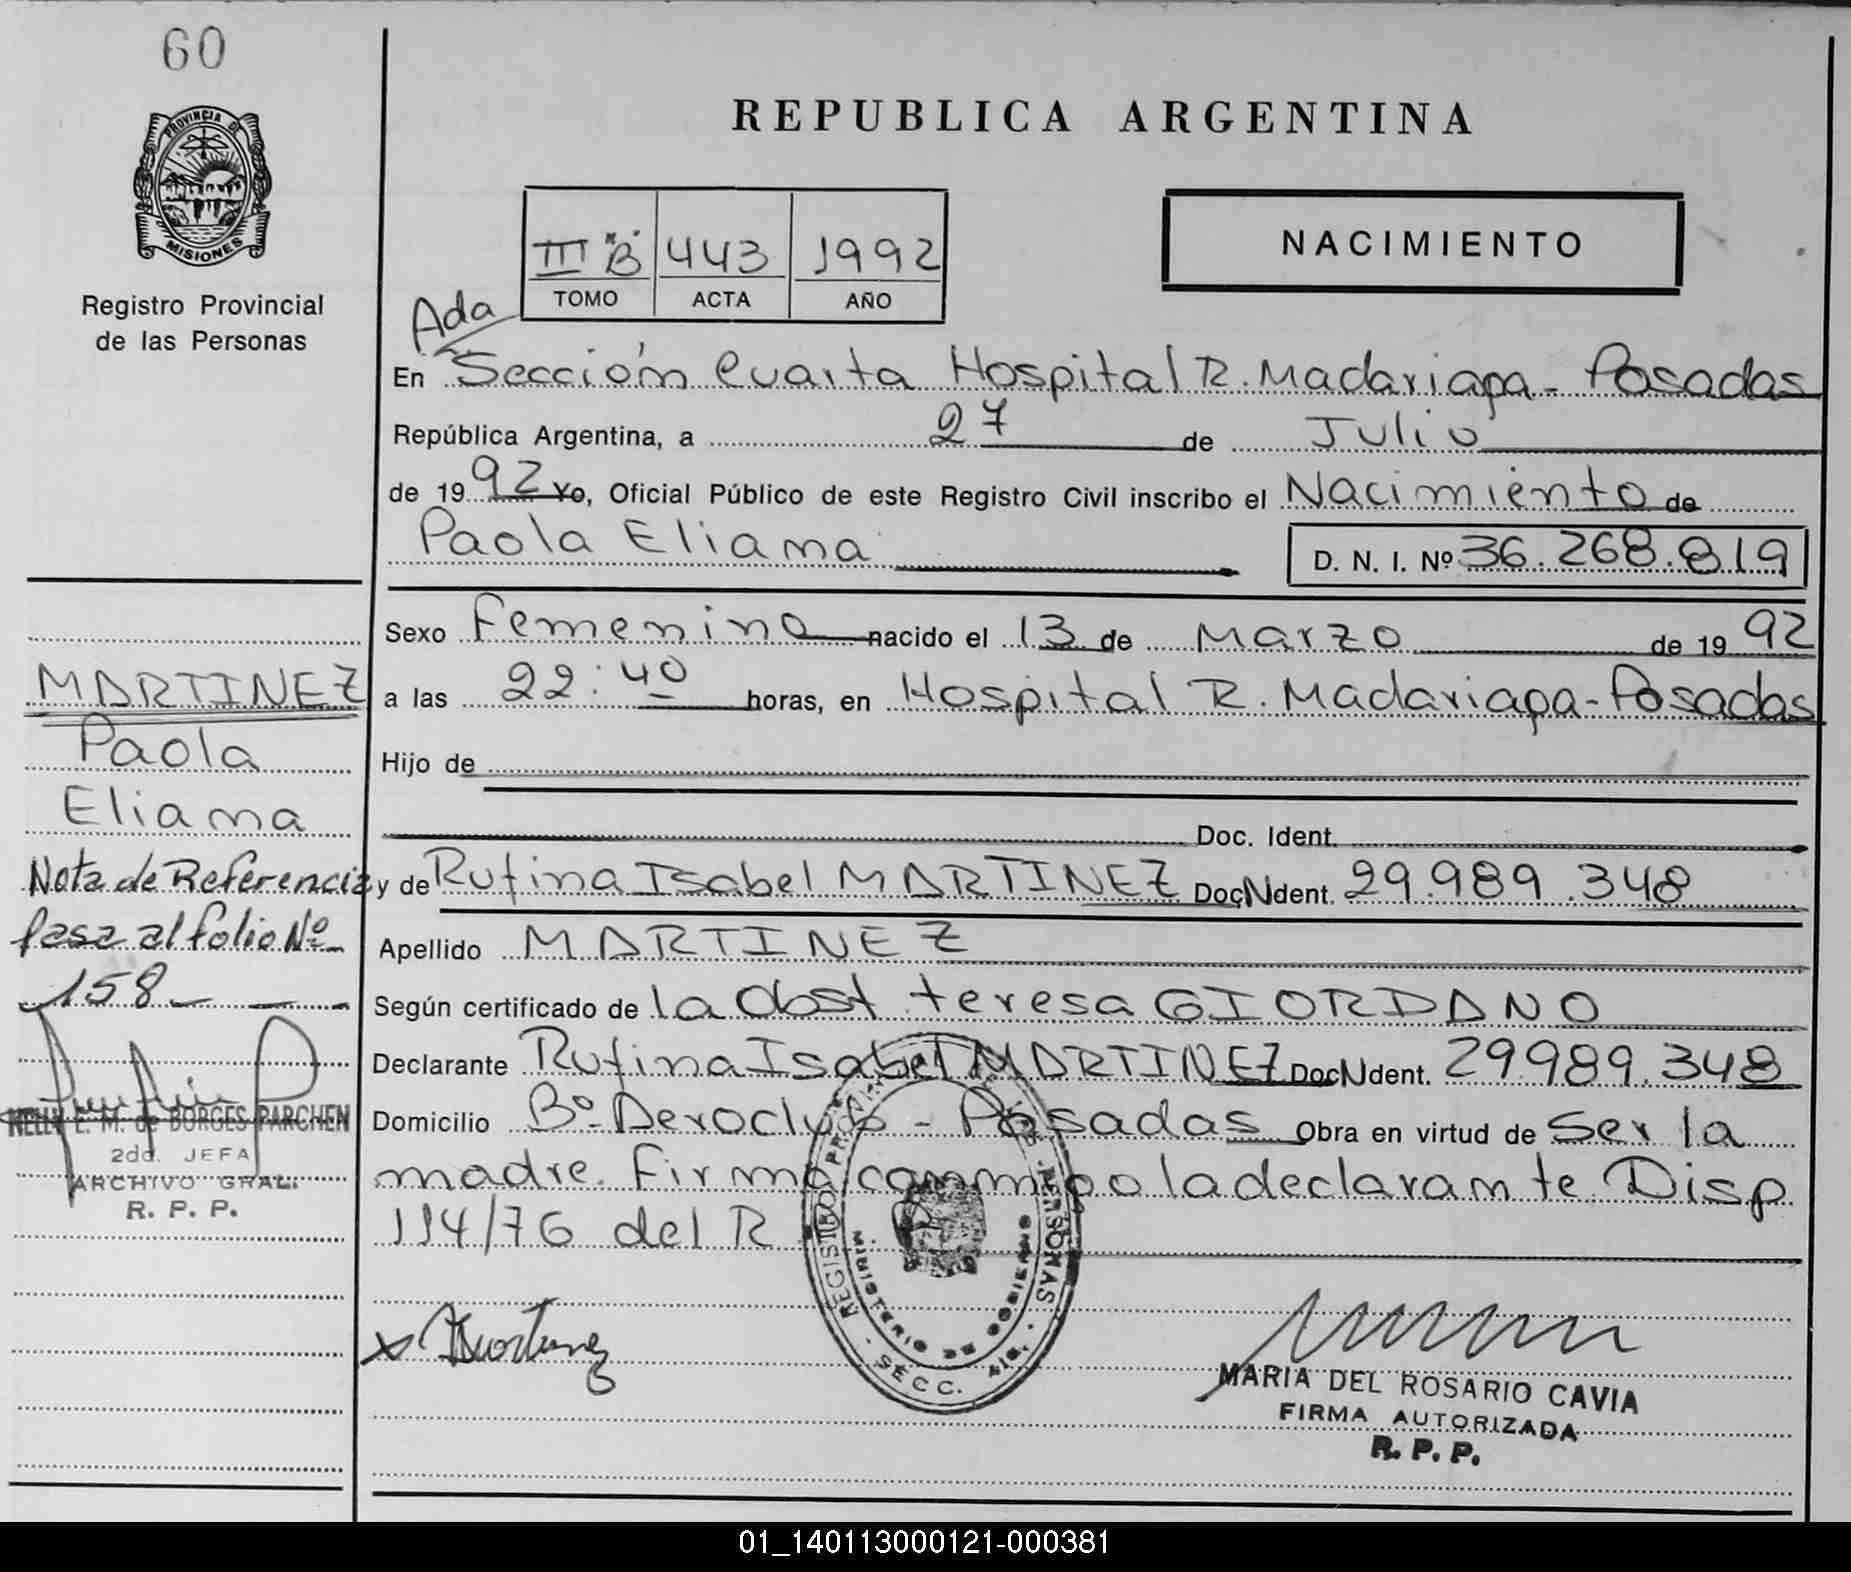 60
PROVINCIA DE
MISIONES
Registro Provincial
de las Personas
REPUBLICA ARGENTINA
III "B" 443 1992
TOMO ACTA AÑO
NACIMIENTO
Ada
En Sección Cuarta Hospital R. Madariaga - Posadas
República Argentina, a 27 de Julio
de 1992 Yo, Oficial Público de este Registro Civil inscribo el Nacimiento de
Paola Eliana D. N. I. Nº 36.268.819
Sexo Femenino nacido el 13 de Marzo de 1992
a las 22:40 horas, en Hospital R. Madariaga - Posadas
Hijo de
Doc. Ident.
y de Rufina Isabel MARTINEZ Doc N Ident. 29.989.348
Apellido MARTINEZ
Según certificado de la Obst teresa GIORDANO
Declarante Rufina Isabel MARTINEZ Doc N Ident. 29989.348
Domicilio Bº - Posadas Obra en virtud de Ser la
madre. Firma conmigo la declarante Disp
114/76 del R
MARTINEZ
Paola
Eliana
Nota de Referencia
pasa al folio Nº
158
NELLY E. M. de BORGES PARCHEN
2da. JEFA
ARCHIVO GRAL.
R. P. P.
REGISTRO PERSONAS
MINISTERIO DE GOBIERNO
SECC. 4ta.
x Martinez
MARIA DEL ROSARIO CAVIA
FIRMA AUTORIZADA
R. P. P.
01_140113000121-000381